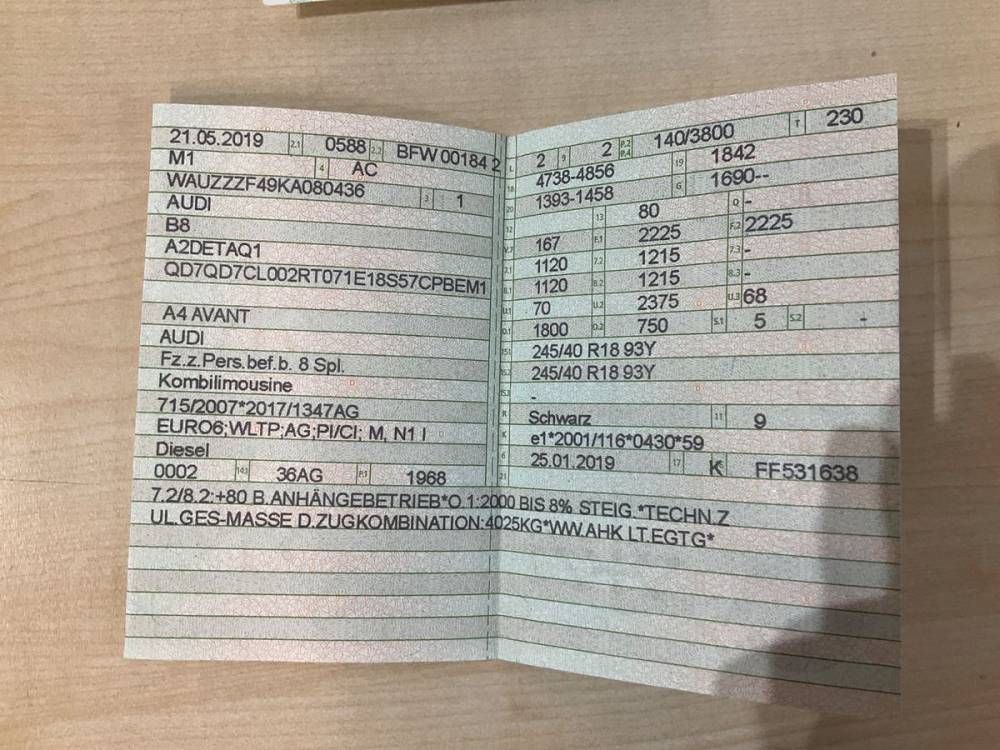 21.05.2019 2.1 0588 2.2 BFW 00184 2
M1 4 AC
WAUZZZF49KA080436 3 1
AUDI
B8
A2DETAQ1
QD7QD7CL002RT071E18S57CPBEM1
A4 AVANT
AUDI
Fz.z.Pers.bef.b. 8 Spl.
Kombilimousine
715/2007*2017/1347AG
EURO6;WLTP;AG;PI/CI; M, N1 I
Diesel
0002 14.1 36AG P.1 1968
L 2 9 2 P.2 P.4 140/3800 T 230
18 4738-4856 19 1842
20 1393-1458 G 1690--
12 13 80 Q -
V.7 167 F.1 2225 F.2 2225
7.1 1120 7.2 1215 7.3 -
8.1 1120 8.2 1215 8.3 -
U.1 70 U.2 2375 U.3 68
O.1 1800 O.2 750 S.1 5 S.2 -
15.1 245/40 R18 93Y
15.2 245/40 R18 93Y
15.3 -
R Schwarz 11 9
K e1*2001/116*0430*59
6 25.01.2019 17 K 16 FF531638
21
7.2/8.2:+80 B.ANHÄNGEBETRIEB*O.1:2000 BIS 8% STEIG.*TECHN.Z
UL.GES-MASSE D.ZUGKOMBINATION:4025KG*WW.AHK LT.EGTG*